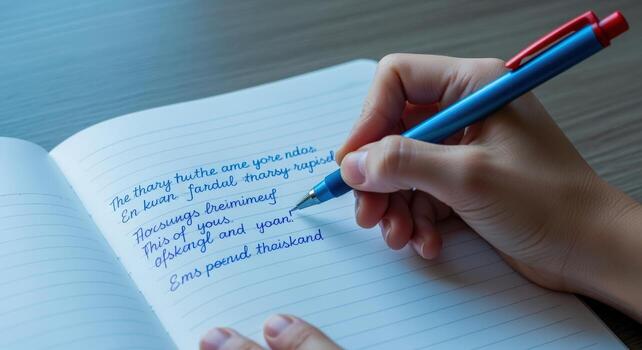 The thary tuithe ame yore ndos.
En kuan. fardal tharsy rapisel
Hocsungs breimimeuf
This of yous.
ofskangl and yoan.
Ems poend thaiskand